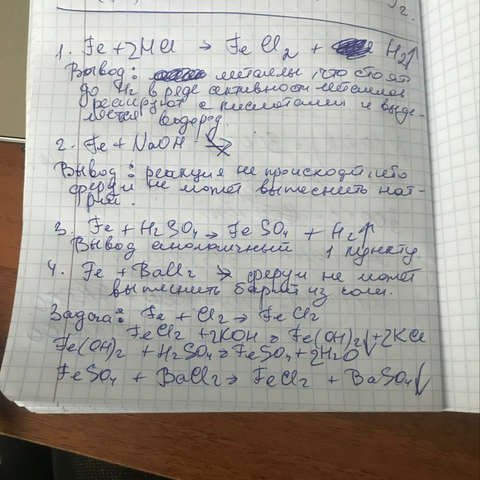 2.
1. Fe + 2HCl → FeCl2 + H2↑
Вывод: металлы, что стоят
до H2 в ряде активности металлов
реагируют с кислотами и выде-
ляется водород.
2. Fe + NaOH ↛
Вывод: реакция не происходит, ибо
ферум не может вытеснить нат-
рий.
3. Fe + H2SO4 → FeSO4 + H2↑
Вывод аналогичный 1 пункту
4. Fe + BaCl2 ↛ ферум не может
вытеснить барий из соли.
Задача: Fe + Cl2 → FeCl2
FeCl2 + 2KOH → Fe(OH)2↓ + 2KCl
Fe(OH)2 + H2SO4 → FeSO4 + 2H2O
FeSO4 + BaCl2 → FeCl2 + BaSO4↓